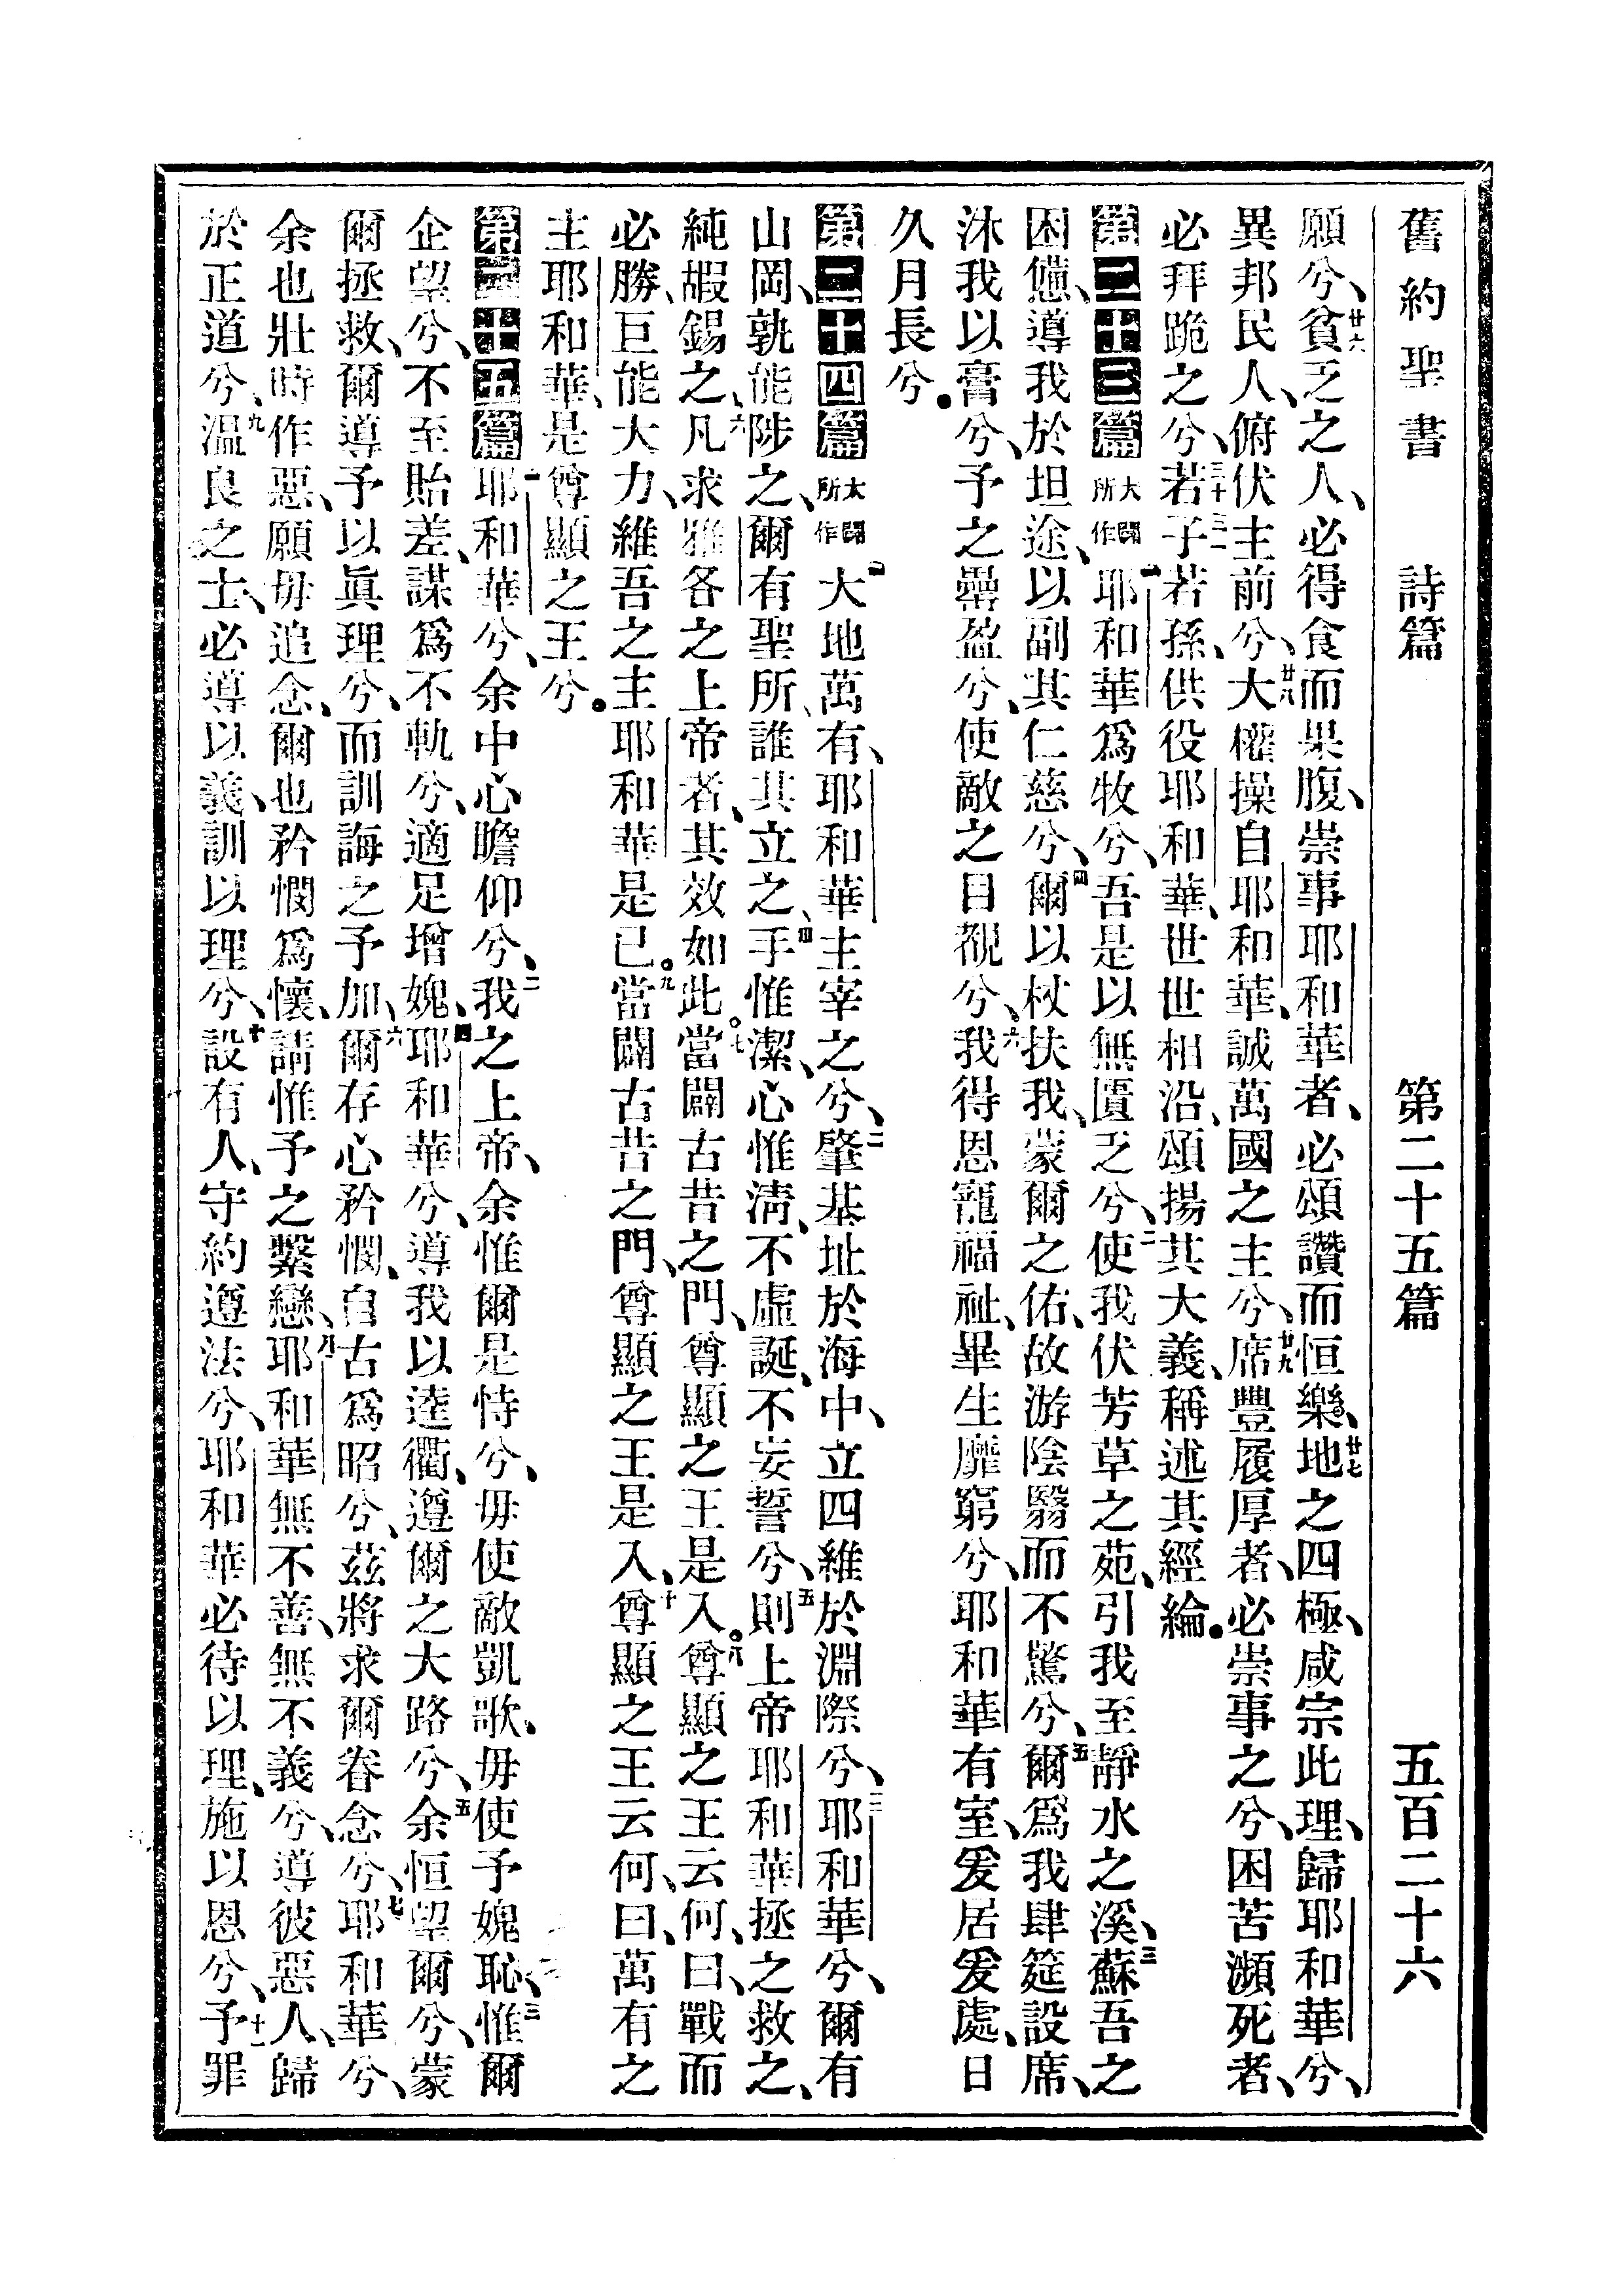 舊約聖書 詩篇 第二十五篇 五百二十六
願兮、廿六貧乏之人、必得食而果腹、崇事耶和華者、必頌讚而恒樂、廿七地之四極、咸宗此理、歸耶和華兮、
異邦民人、俯伏主前兮、廿八大權操自耶和華、誠萬國之主兮、廿九席豐履厚者、必崇事之兮、困苦瀕死者、
必拜跪之兮、三十三一若子若孫、供役耶和華、世世相沿、頌揚其大義、稱述其經綸。
第二十三篇 大闢所作 一耶和華爲牧兮、吾是以無匱乏兮、二使我伏芳草之苑、引我至靜水之溪、三蘇吾之
困憊、導我於坦途、以副其仁慈兮、四爾以杖扶我、蒙爾之佑、故游陰翳而不驚兮、五爾爲我肆筵設席、
沐我以膏兮、予之罍盈兮、使敵之目覩兮、六我得恩寵福祉、畢生靡窮兮、耶和華有室、爰居爰處、日
久月長兮。
第二十四篇 大闢所作 一大地萬有、耶和華主宰之兮、二肇基址於海中、立四維於淵際兮、三耶和華兮、爾有
山岡、孰能陟之、爾有聖所、誰其立之、四手惟潔、心惟淸、不虛誕、不妄誓兮、五則上帝耶和華拯之救之、
純嘏錫之、六凡求雅各之上帝者、其效如此。七當闢古昔之門、尊顯之王是入。八尊顯之王云何、曰、戰而
必勝、巨能大力、維吾之主耶和華是已。九當闢古昔之門、尊顯之王是入、十尊顯之王云何、曰、萬有之
主耶和華、是尊顯之王兮。
第二十五篇 一耶和華兮、余中心瞻仰兮、二我之上帝、余惟爾是恃兮、毋使敵凱歌、毋使予媿恥、三惟爾
企望兮、不至貽差、謀爲不軌兮、適足增媿、四耶和華兮、導我以逵衢、遵爾之大路兮、五余恒望爾兮、蒙
爾拯救、爾導予以眞理兮、而訓誨之予加、六爾存心矜憫、自古爲昭兮、茲將求爾眷念兮、七耶和華兮、
余也壯時作惡、願毋追念、爾也矜憫爲懷、請惟予之繫戀、八耶和華無不善、無不義兮、導彼惡人、歸
於正道兮、九溫良之士、必導以義、訓以理兮、十設有人、守約遵法兮、耶和華必待以理、施以恩兮、十一予罪